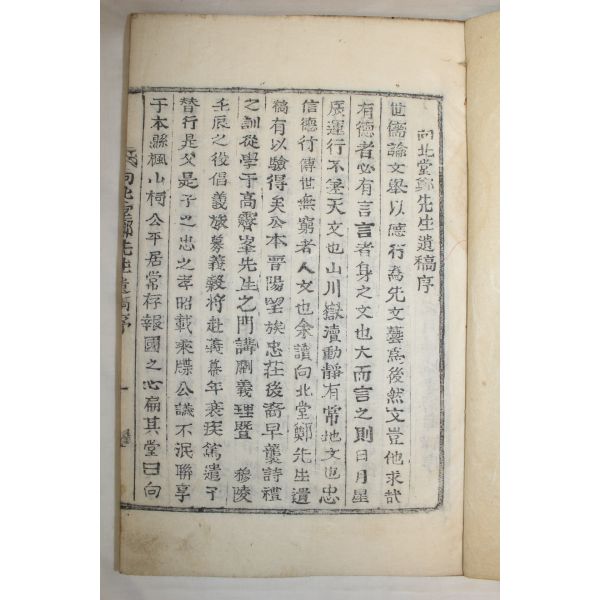 向北堂鄭先生遺稿序
世儒論文學以德行為先文藝為後然文豈他求哉
有德者必有言言者身之文也大而言之則日月星
辰運行不塞天文也山川嶽瀆動靜有常地文也忠
信德行傳世無窮者人文也余讀向北堂鄭先生遺
稿有以驗得矣公本晋陽望族忠莊後裔早襲詩禮
之訓從學于高霽峯先生之門講劘義理暨 穆陵
壬辰之役倡義旅募義穀將赴義幕年衰疾篤遣了
替行是父是子之忠之孝昭載來牒公議不泯聯享
于本縣楓山祠公平居常存報國之心扁其堂曰向
向北堂鄭先生遺稿序 一